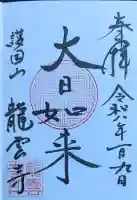 奉拝 令和 年一月九日
大日如来
護国山
龍雲寺